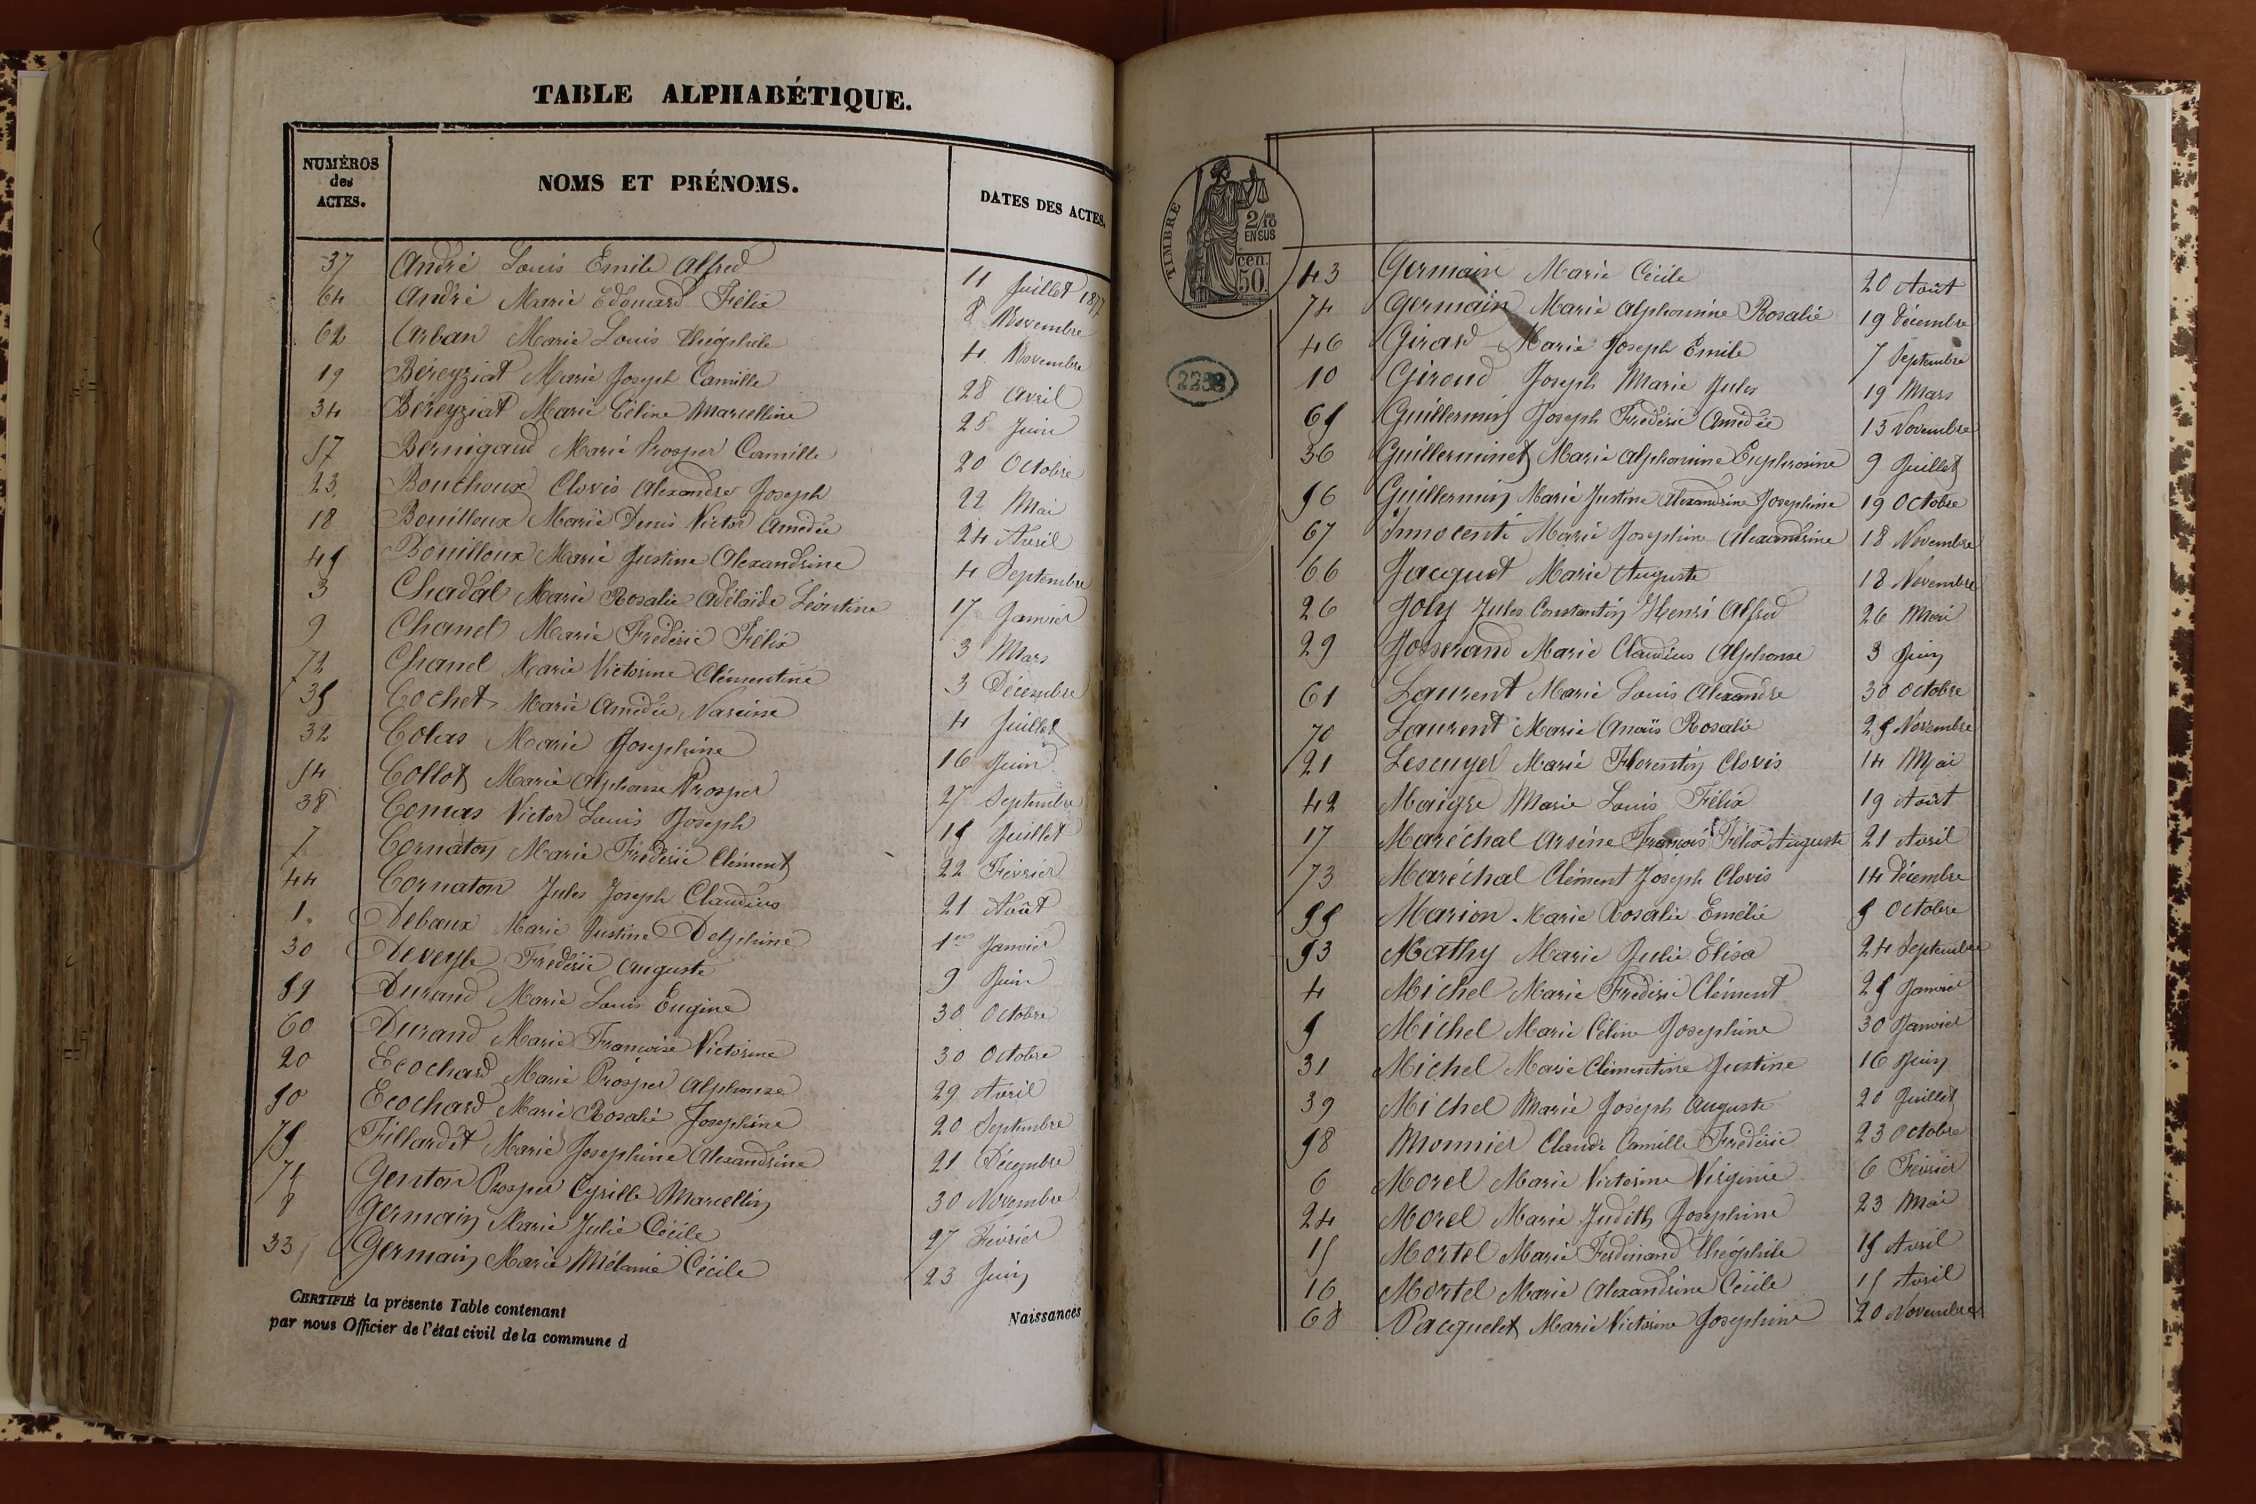 TABLE ALPHABÉTIQUE.
NUMÉROS des ACTES. NOMS ET PRÉNOMS. DATES DES ACTES.
37 André Louis Emile Alfred 11 Juillet 1877
64 André Marie Edouard Félix 8 Novembre
62 Arban Marie Louis Théophile 4 Novembre
19 Béreyziat Marie Joseph Camille 28 Avril
34 Béreyziat Marie Céline Marcelline 28 Juin
57 Bernigaud Marie Prosper Camille 20 Octobre
23 Bouchoux Clovis Alexandre Joseph 22 Mai
18 Bouilloux Marie Denis Victor Amédée 24 Avril
45 Bouilloux Marie Justine Alexandrine 4 Septembre
3 Chadal Marie Rosalie Adélaïde Léontine 17 Janvier
9 Chanel Marie Frédéric Félix 3 Mars
72 Chanel Marie Victorine Clémentine 3 Décembre
35 Cochet Marie Amédée Narcisse 4 Juillet
32 Colas Marie Josephine 16 Juin
54 Collot Marie Alphonse Prosper 27 Septembre
38 Comas Victor Louis Joseph 15 Juillet
7 Cornaton Marie Frédéric Clément 22 Février
44 Cornaton Jules Joseph Claudius 21 Août
1 Debœux Marie Justine Delphine 1er Janvier
30 Deveyle Frédéric Auguste 9 Juin
59 Durand Marie Louis Eugène 30 Octobre
60 Durand Marie Françoise Victorine 30 Octobre
20 Ecochard Marie Prosper Alphonse 29 Avril
50 Ecochard Marie Rosalie Josephine 20 Septembre
75 Fillardet Marie Josephine Alexandrine 21 Décembre
71 Genton Prosper Cyrille Marcellin 30 Novembre
8 Germain Marie Julie Cécile 27 Février
33 Germain Marie Mélanie Cécile 23 Juin
CERTIFIÉ la présente Table contenant Naissances
par nous Officier de l'état civil de la commune d
TIMBRE
2/10
EN SUS
cen.
50.
2238
43 Germain Marie Cécile 20 Août
74 Germain Marie Alphonsine Rosalie 19 Décembre
46 Girard Marie Joseph Emile 7 Septembre
10 Giroud Joseph Marie Jules 19 Mars
65 Guillermin Joseph Frédéric Amédée 13 Novembre
36 Guillerminet Marie Alphonsine Euphrosine 9 Juillet
56 Guillermin Marie Justine Alexandrine Josephine 19 Octobre
67 Innocenti Marie Josephine Alexandrine 18 Novembre
66 Jacquet Marie Auguste 18 Novembre
26 Joly Jules Constantin Henri Alfred 26 Mai
29 Josserand Marie Claudius Alphonse 3 Juin
61 Laurent Marie Louis Alexandre 30 Octobre
70 Laurent Marie Anaïs Rosalie 25 Novembre
21 Lescuyer Marie Florentin Clovis 14 Mai
42 Maigre Marie Louis Félix 19 Août
17 Maréchal Arsène François Félix Auguste 21 Avril
73 Maréchal Clément Joseph Clovis 14 Décembre
55 Marion Marie Rosalie Emélie 5 Octobre
53 Mathy Marie Julie Elisa 24 Septembre
4 Michel Marie Frédéric Clément 25 Janvier
5 Michel Marie Céline Josephine 30 Janvier
31 Michel Marie Clémentine Justine 16 Juin
39 Michel Marie Joseph Auguste 20 Juillet
58 Monnier Claude Camille Frédéric 23 Octobre
6 Morel Marie Victorine Virginie 6 Février
24 Morel Marie Judith Josephine 23 Mai
15 Mortel Marie Ferdinand Théophile 15 Avril
16 Mortel Marie Alexandrine Cécile 15 Avril
68 Pacquelet Marie Victorine Josephine 20 Novembre